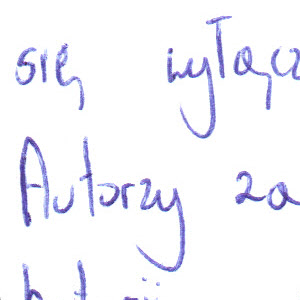 się wyłącz
Autorzy za